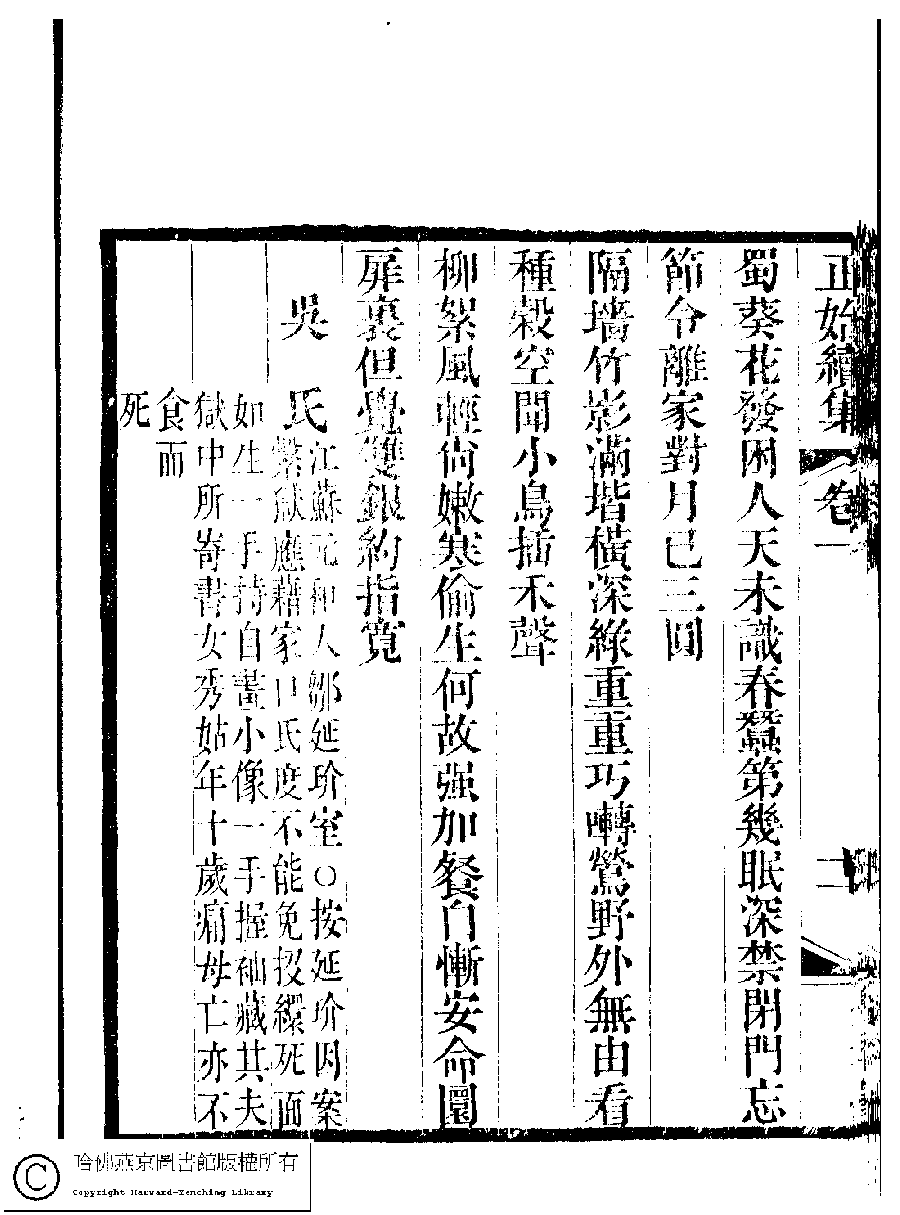 正始續集
卷一
二
蜀葵花發困人天未識春蠶第幾眠深禁閉門忘
節令離家對月已三圓
隔墻竹影滿堦橫深綠重重巧囀鶯野外無由看
種穀空聞小鳥插禾聲
柳絮風輕尙嫩寒偷生何故强加餐自慚安命圜
扉裏但覺雙銀約指寬
吳　氏
江蘇元和人鄒延玠室○按延玠因案
繫獄應藉家口氏度不能免投繯死面
如生一手持自畫小像一手握袖藏其夫
獄中所寄書女秀姑年十歲痛母亡亦不
食而
死
哈佛燕京圖書館版權所有
Copyright Harvard-Yenching Library